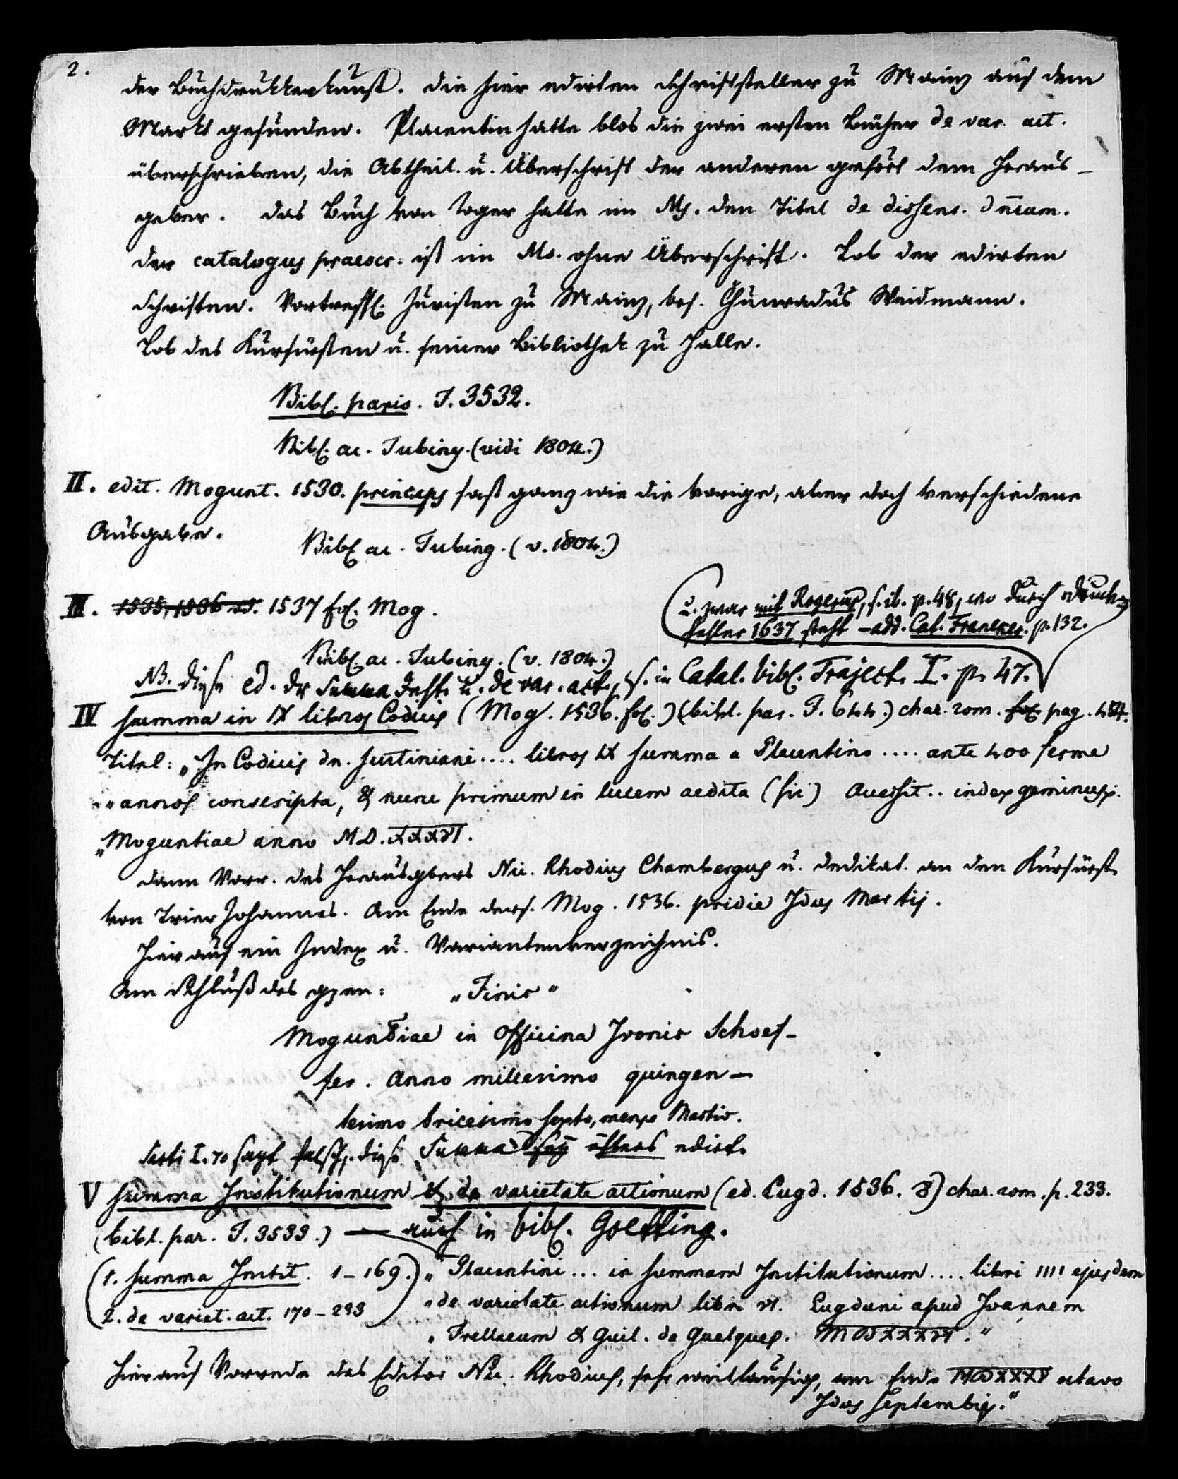 2.
der Buchdrukkerkunst. Die hier edirten Schriftsteller zu Mainz auf dem
Markt gefunden. Placentin hatte blos die zwei ersten Bücher de var. act.
überschrieben, die Abtheil. u. Überschrift der anderen gehört dem Heraus-
geber. Das Buch von Roger hatte im Ms. den Titel de dissens. dneam.
der catalogus praescr. ist im Ms. ohne Überschrift. Lob der edirten
Schriften. Vortreffl. Juristen zu Mainz, bes. Chunradus Weidmann.
Lob des Kurfürsten u. seiner Bibliothek zu Halle.
Bibl. paris. F. 3532.
Bibl. ac. Tubing. (vidi 1804.)
II. edit. Mogunt. 1530. princeps fast ganz wie die vorige, aber doch verschiedene
Ausgabe.
Bibl. ac. Tubing. (v. 1804.)
III. 1535, 1536 1537 fol. Mog.
u. zwar mit Rogerius, s. ib. p. 48, wo durch Druck-
fehler 1637 steht – add. Cat. Franeker. p. 132.
Bibl. ac. Tubing. (v. 1804.)
NB. diese ed. der Summa Inst. u. de var. act., s. in Catal. bibl. Traject. I. p. 47.
IV Summa in IX libros Codicis (Mog. 1536. fol.) (bibl. par. F. 644.) char. rom. fol. pag.
Titel: „In Codicis dn. Justiniani .... libros IX summa a Placentino .... ante 400 ferme
„annos conscripta, & nunc primum in lucem aedita (sic) Accessit .. index geminus.
„Moguntiae anno M.D.XXXVI.
Dann Vorr. des Herausgebers Nic. Rhodius Chambergus u. Dedikat. an den Kurfürst
von Trier Johannes. Am Ende ders. Mog. 1536. pridie Idus Martij.
Hierauf ein Index u. Variantenverzeichnis.
Am Schluß des gzen: „Finis“
Moguntiae in officina Ivonis Schoef-
fer. Anno millesimo quingen-
tesimo tricesimo sexto, mense Martio.
Sarti I. 70 sagt fälschl. diese Summa sey öfters edirt.
V Summa Institutionum & de varietate actionum (ed. Lugd. 1536. 8) char. rom. p. 233.
(bibl. par. F. 3533.) — auch in bibl. Goetting.
(1. Summa Instit. 1–169.) „Placentini ... in summam Institutionum .... libri IIII ejusdem
2. de variet. act. 170–233 „de varietate actionum libri VI. Lugduni apud Joannem
„Frellaeum & Guil. de Guelques. MDXXXVI.“
Hierauf Vorrede des Editor Nic. Rhodius, sehr weitläufig, am Ende MDXXXV octavo
Idus Septembris.“